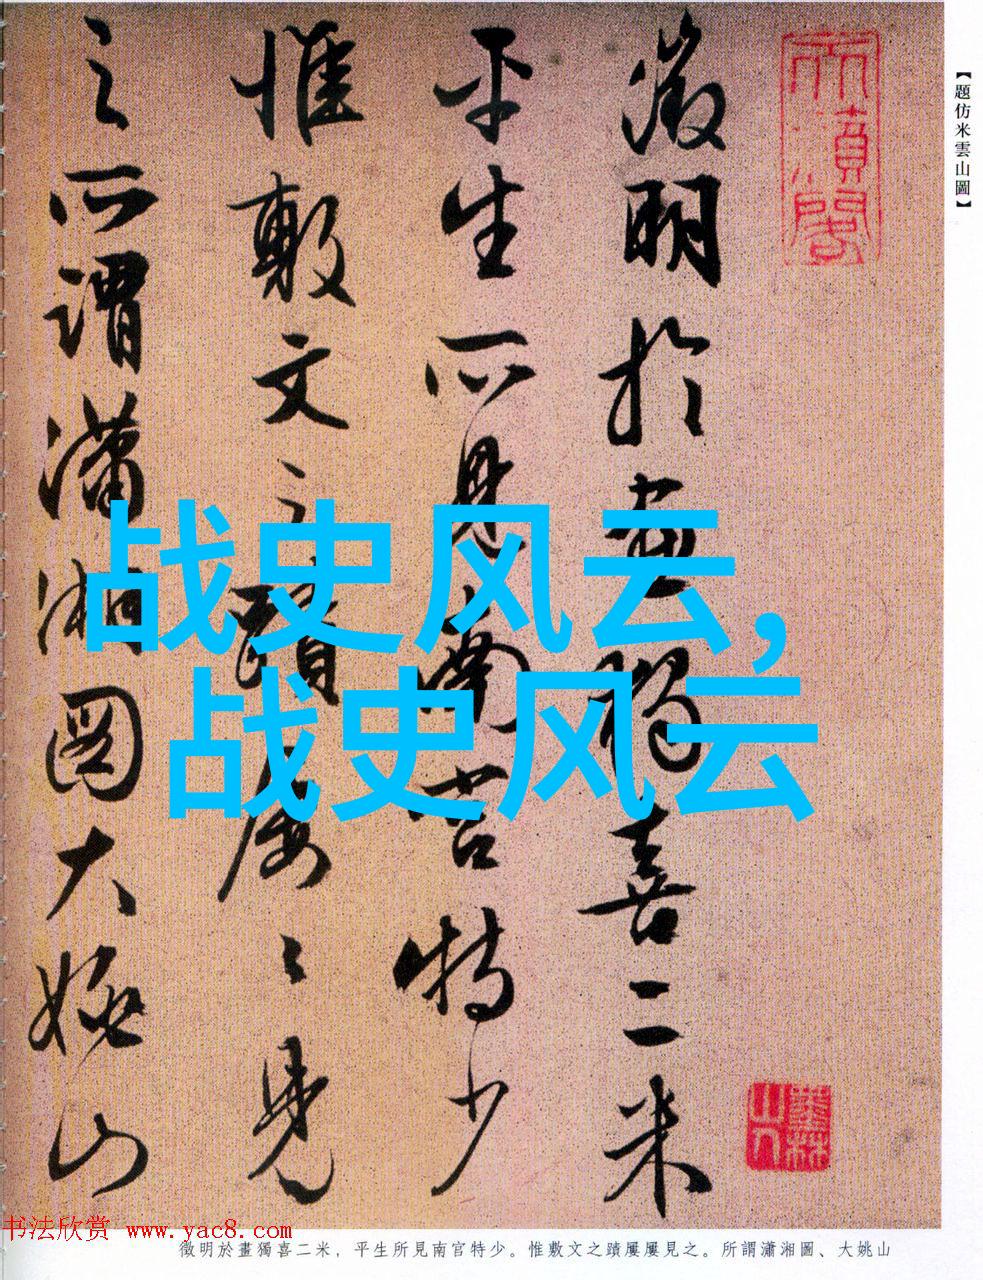 【題仿米雲山圖】
徵明於畫獨喜二米
平生所見南宮特少
惟敷文之蹟屢〻見
之所謂瀟湘圖大姚山
战史风云,
战史风云
墨林
山人
书法欣赏 www.yac8.com
徵明於畫獨喜二米，平生所見南宮特少。惟敷文之蹟屢屢見之。所謂瀟湘圖、大姚山